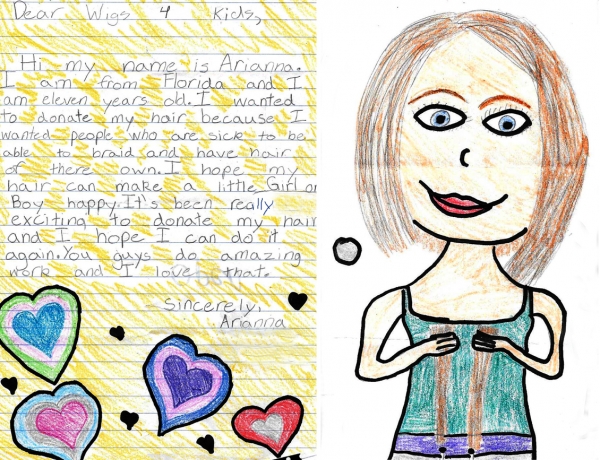 Dear Wigs 4 Kids,
Hi my name is Arianna.
I am from Florida and I
am eleven years old. I wanted
to donate my hair because I
wanted people who are sick to be
able to braid and have hair
of there own. I hope my
hair can make a little Girl or
Boy happy. It's been really
exciting to donate my hair
and I hope I can do it
again. You guys do amazing
work and I love that.
Sincerely,
Arianna